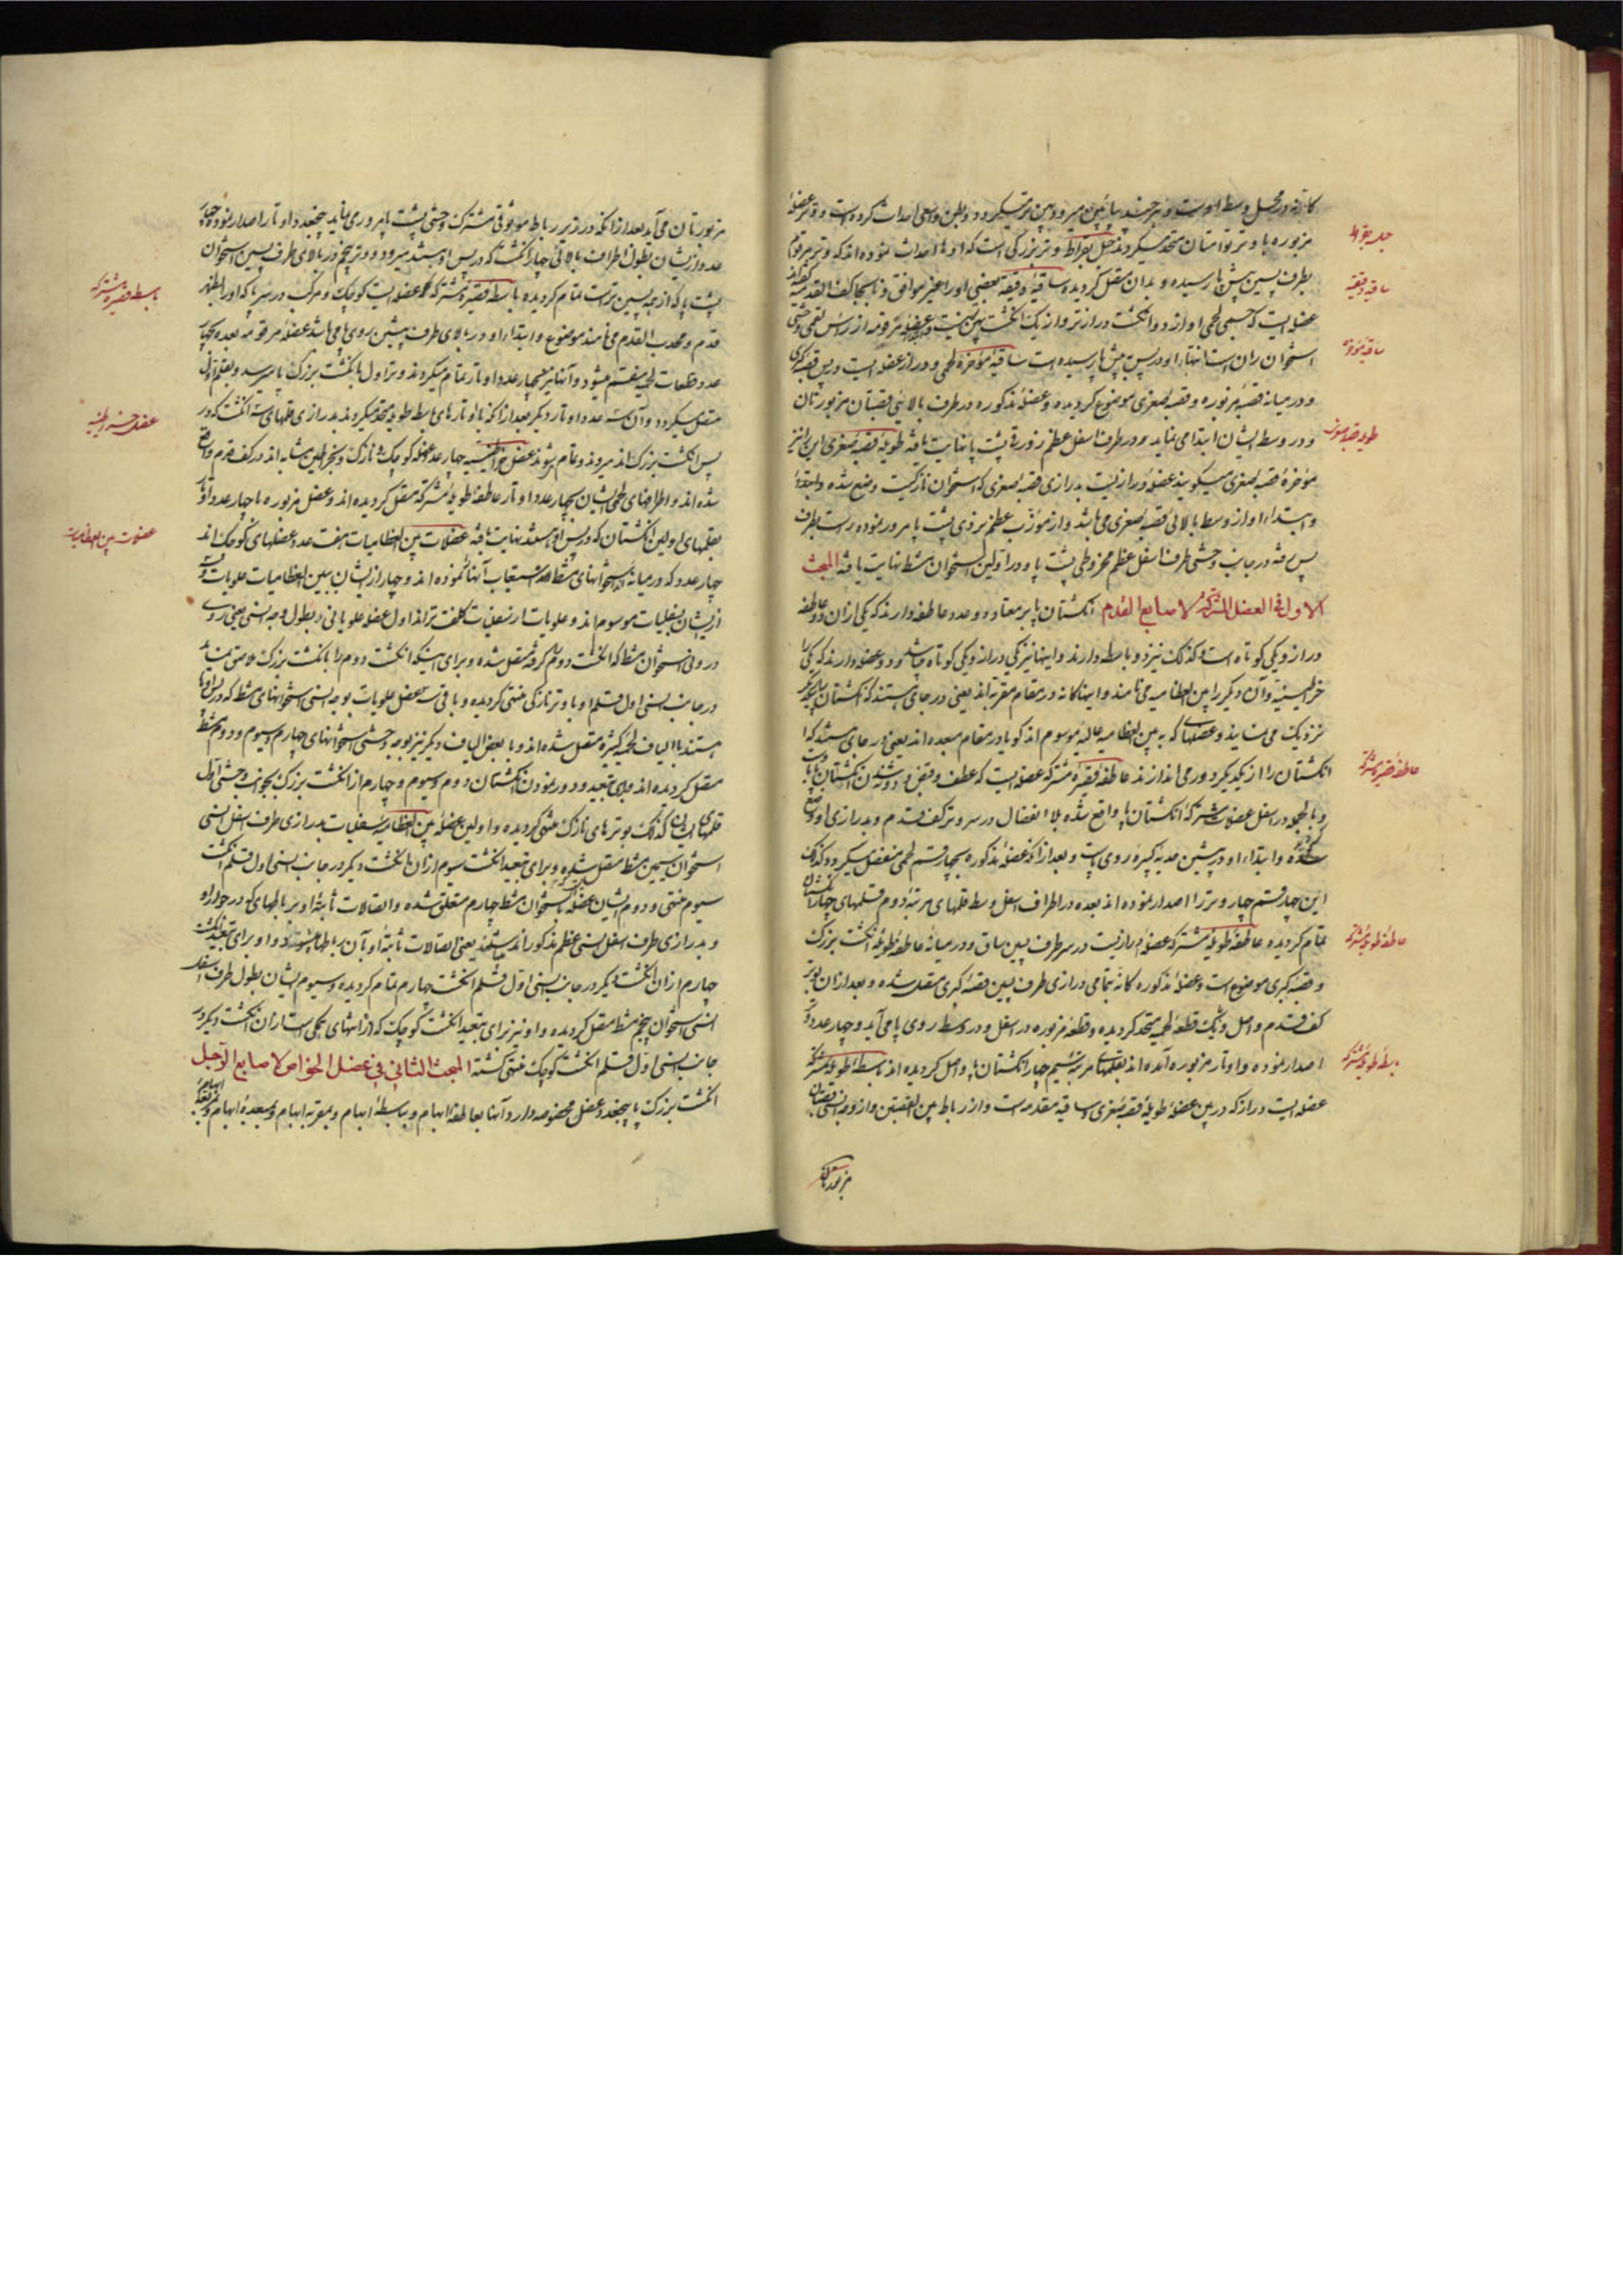 کانه در محل وسط اوست و هر چند بپائین میرود پهن تر میگردد و بطن واسعی احداث کرده است و وتر عضلهٔ
مزبوره با وتر توامتان متحد میگردند حبل بقراط وتر بزرگی است که او ها احداث نموده اند که وتر مرقوم
بطرف پسین پیش پا رسیده و بدان متصل گردیده ساقیهٔ دقیقه بعضی او را غیر موافق و نابجا کف القدمیه گفته اند
عضله ایست که جسم لحمی او از دو انگشت دراز تر و از یک انگشت پهن تر نیست و عضلهٔ مرقومه از رأس لقمی وحشی
استخوان ران است انتهاء او در پس پیش پا رسیده است ساقیهٔ مؤخره لحمی و دراز عضله ایست در پس قصبهٔ کبری
و در میانه قصبهٔ مزبوره و قصبهٔ صغری موضوع گردیده و عضلهٔ مذکوره در طرف بالائی قصبتان مزبورتان
و در وسط ایشان ابتدا می نماید و در طرف اسفل عظم زورقی پشت پا نهایت یافته طویلهٔ قصبهٔ صغری این را نیز
مؤخرهٔ قصبهٔ صغری میگویند عضلهٔ درازیست بدرازی قصبهٔ صغری که استخوان نازکیست وضع شده
و ابتداء او از وسط بالائی قصبهٔ صغری می باشد و از موزب عظم نردی پشت پا مرور نموده راست بطرف
پس رفته در جانب وحشی طرف اسفل عظم مخروطی پشت پا و در اولین استخوان مشط نهایت یافته المبحث
الاول فی العضل المشترکة لاصابع القدم انگشتان پا بر معتاد دو عدد عاطفه دارند که یکی ازان دو عاطفه
دراز و یکی کوتاه است کذلک نیز دو باسطه دارند و اینها نیز یکی دراز و یکی کوتاه باشد و دو عضله دارند که یکی را
خراطینیه و آن دیگر را بین العظامیه می نامند و اینها کانه در مقام مقربه اند یعنی در جای هستند که انگشتان را بیکدیگر
نزدیک می نمایند و عضلهای که به بین العظامیه عالیه موسوم اند کویا در مقام مبعده اند یعنی در جای هستند که
انگشتان را از یکدیگر دور می اندازند عاطفهٔ قصیرهٔ مشترکه عضله ایست که عطف و قبض دو شدن انگشتان پا بآنست
و بالجمله در اسفل عضلات مشترکهٔ انگشتان پا واقع شده بلا انفصال در سر وتر کف قدم و بدرازی او وضع
گردیده و ابتداء او در پیشین حدبهٔ کبیرهٔ روی پاست و بعد ازان عضلهٔ مذکوره بچهار قسم لحمی منفصل میگردد کذلک
این چهار قسم چهار وتر را اصدار نموده اند بعده در اطراف اسفل وسط قلمهای مرتبهٔ دوم قلمهای چهار انگشتان
تمام گردیده عاطفهٔ طویلهٔ مشترکه عضلهٔ درازیست در سر طرف پسین ساق و در میانهٔ عاطفهٔ طویلهٔ انگشت بزرگ
و قصبهٔ کبری موضوع است و عضلهٔ مذکوره کانه بتمامی درازی طرف پسین قصبهٔ کبری متصل شده و بعد ازان بوتر
کف قدم واصل و بیک قطعهٔ لحمیه متحد گردیده و قطعهٔ مزبوره در اسفل و در وسط روی پا می آید و چهار عدد وتر
اصدار نموده و اوتار مزبوره آمده اند بقلمهای مرتبهٔ سیم چهار انگشتان پا واصل گردیده اند باسطهٔ طویلهٔ مشترکه
عضله ایست دراز که در بین عضلهٔ طویلهٔ قصبهٔ صغری و ساقیهٔ مقدمه است و از رباط بین القصبتین و از وجه انسی قصبتان
مزبورتان
حبل بقراط
ساقیه دقیقه
ساقیه مؤخره
طویله قصبه صغری
عاطفه قصیره مشترکه
عاطفه طویله مشترکه
باسطه طویله مشترکه
مزبورتان می آید بعد از انکه در زیر رباط موثوقی مشترک وحشی پشت پا مرور می نماید پنج عدد اوتار اصدار نموده چهار
عدد از ایشان بطول اطراف بالائی چهار انگشت که در پس او هستند میرود و وتر پنجم در بالای طرف پسین استخوان
پشت پا که از همه پسین تر است تمام گردیده باسطهٔ قصیرهٔ مشترکه عضله ایست کوچک و مرکب در سر پا که او را ظهر
قدم و محدب القدم می نامند موضوع و ابتداء او در بالای طرف پیشین روی پا می باشد عضلهٔ مرقومه بعده بچهار
عدد قطعات لحمیه منقسم میشود و آنها نیز بچهار عدد اوتار تمام میگردند وتر اول بانگشت بزرگ پا میرسد و بقلم اول
متصل میگردد و آن سه عدد اوتار دیگر بعد از انکه با اوتارهای باسط طویله متحد میگردند بدرازی قلمهای سه انگشت که در
پس انگشت بزرگ اند میروند و تمام میشوند عضل خراطینیه چهار عدد عضله کوچک و نازک و بخراطین مشابه اند در کف قدم واقع
شده اند و اطرافهای لحمی ایشان بچهار عدد اوتار عاطفهٔ طویلهٔ مشترکه متصل گردیده اند و عضل مزبوره با چهار عدد اوتار
بقلمهای اولین انگشتان که در پس او هستند نهایت یافته عضلات بین العظامیات هفت عدد عضلهای کوچک اند
چهار عدد که در میانهٔ استخوانهای مشط هستند استیعاب آنها نموده اند و چهار از ایشان ببین العظامیات علویات و سه
از ایشان بسفلیات موسوم اند و علویات از سفلیات کلفت تر اند اول عضلهٔ علویاتی بطول وجه انسی یعنی روی
درونی استخوان مشط که انگشت دوم را گرفته متصل شده و برای اینکه انگشت دوم را بانگشت بزرگ لاحق نماید
در جانب انسی اول قلم او با وتر نازکی منتهی گردیده و باقی سه عضل علویات بوجه انسی استخوانهای مشط که در پس اوها
هستند با الیاف لحمیهٔ کثیره متصل شده اند و با بعض الیاف دیگر نیز بوجه وحشی استخوانهای چهارم و سیوم و دوم مشط
متصل گردیده اند و برای تبعید و دور نمودن انگشتان دوم و سیوم و چهارم از انگشت بزرگ بجوانب وحشی اول
قلمهای ایشان کذلک بوترهای نازک منتهی گردیده و اولین عضلهٔ بین العظامیه سفلیات بدرازی طرف اسفل انسی
استخوان سیمین مشط متصل شده و برای تبعید انگشت سوم ازان بانگشت دیگر در جانب انسی اول قلم انگشت
سیوم منتهی و دوم ایشان بعضله استخوان مشط چهارم متعلق شده و اتصالات ثابتهٔ او بر باطهای که در جوار او
و بدرازی طرف اسفل انسی عظم مذکور اند مستند یعنی اتصالات ثابتهٔ او بآن رباطها میشوند و او برای تبعید انگشت
چهارم ازان انگشت دیگر در جانب انسی اول قلم انگشت چهارم تمام گردیده و سیوم ایشان بطول طرف اسفل
انسی استخوان پنجم مشط متصل گردیده و او نیز برای تبعید انگشت کوچک که از انتهای همگی است ازان انگشت دیگر در
جانب انسی اول قلم انگشت کوچک منتهی گشته المبحث الثانی فی عضل الخواص لاصابع الرجل
انگشت بزرگ پا پنج عدد عضل مخصوصه دارد و آنها بعاطفهٔ ابهام و باسطهٔ ابهام و مقربه ابهام و مبعدهٔ ابهام
باسطه قصیره مشترکه
عضل خراطینیه
عضلات بین العظامیات